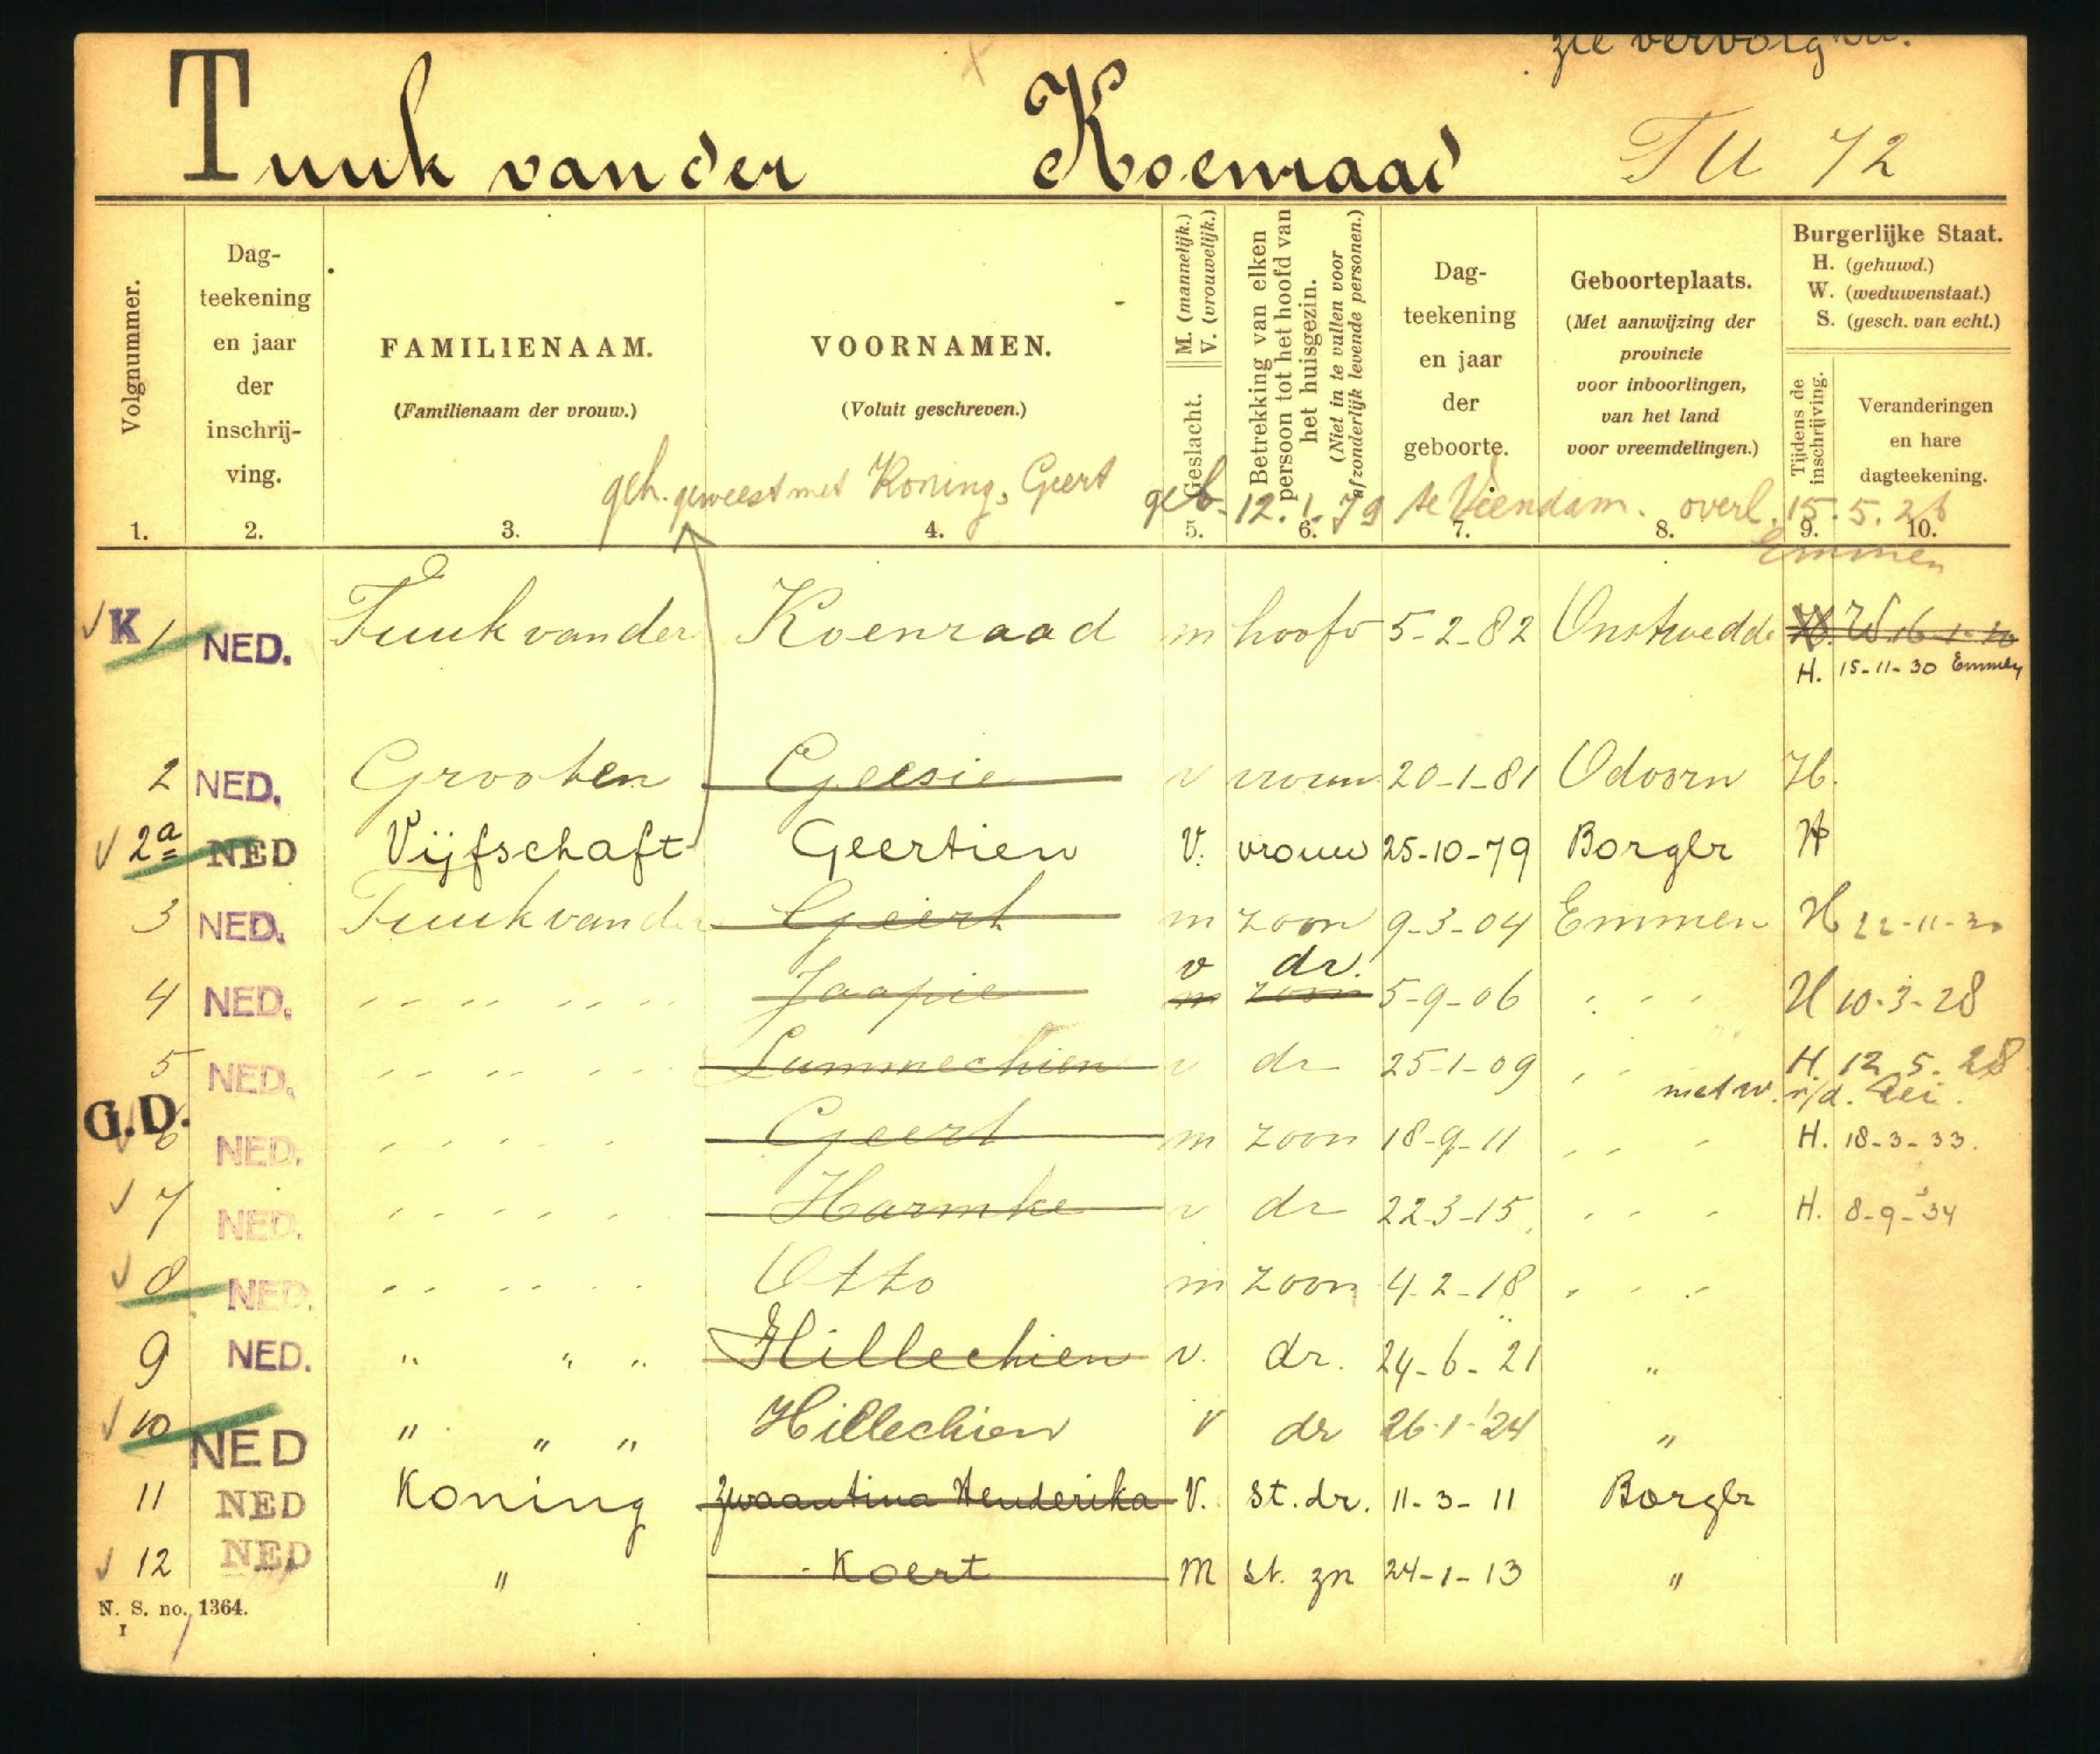 zie vervolg
Tuuk van der Koenraad TU 72
Volgnummer.
Dag-
teekening
en jaar
der
inschrij-
ving.
FAMILIENAAM.
(Familienaam der vrouw.)
VOORNAMEN.
(Voluit geschreven.)
Geslacht.
M. (mannelijk.)
V. (vrouwelijk.)
Betrekking van elken
persoon tot het hoofd van
het huisgezin.
(Niet in te vullen voor
afzonderlijk levende personen.)
Dag-
teekening
en jaar
der
geboorte.
Geboorteplaats.
(Met aanwijzing der
provincie
voor inboorlingen,
van het land
voor vreemdelingen.)
Burgerlijke Staat.
H. (gehuwd.)
W. (weduwenstaat.)
S. (gesch. van echt.)
Tijdens de
inschrijving.
Veranderingen
en hare
dagteekening.
geh. geweest met Koning, Geert geb. 12.1.79 te Veendam. overl. 15.5.26
Emmen
1. 2. 3. 4. 5. 6. 7. 8. 9. 10.
K 1 NED. Tuuk van der Koenraad m hoofd 5-2-82 Onstwedde W 16-1-
H. 15-11-30 Emmen
2 NED. Grooten Geesie v vrouw 20-1-81 Odoorn H.
2a NED Vijfschaft Geertien V. vrouw 25-10-79 Borger H
3 NED. Tuuk van der Geert m zoon 9-3-04 Emmen H 22-11-30
v dr.
4 NED. " " " " Jaapie m zoon 5-9-06 " " " H 10-3-28
5 NED. " " " " Lammechien v dr 25-1-09 " " H. 12.5.28
met w. r/d.
G.D. 6 NED. " " " " Geert m zoon 18-9-11 " " H. 18-3-33.
7 NED. " " " " Harmke v dr 22-3-15 " " " H. 8-9-34
8 NED. " " " " Otto m zoon 4-2-18 " " "
9 NED. " " " Hillechien v. dr. 24-6-21 "
10 NED " " " Hillechien v dr 26-1-'24 "
11 NED Koning Zwaantina Henderika V. st. dr. 11-3-11 Borger
12 NED " Koert M st. zn 24-1-13 "
N. S. no. 1364.
I